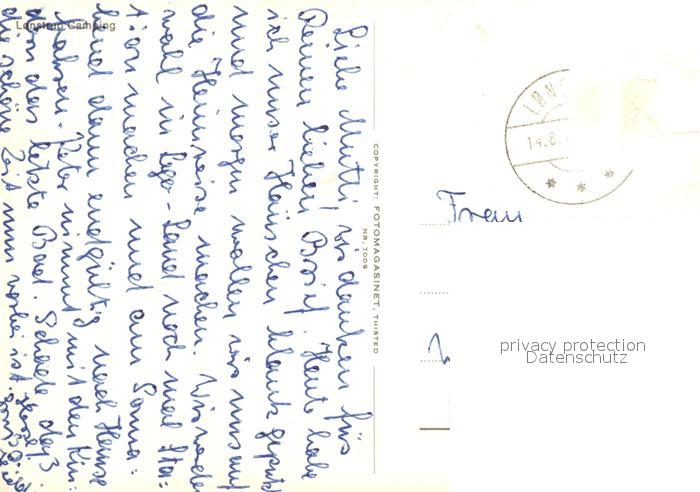 Lønstrup Camping
Liebe Mutti wir danken für
Deinen lieben Brief. Heute habe
ich unser Häuschen blank geputzt
und morgen wollen wir uns auf
die Heimreise machen. Wir werden
wohl in Lego-Land noch mal Sta=
tion machen und am Sonna=
bend dann endgültig nach Hause
fahren. Peter nimmt mit den Kin=
dern das letzte Bad. Schade daß
die schöne Zeit nun vorbei ist.
COPYRIGHT: FOTOMAGASINET, THISTED
NR. 7009
LØNS
14.8.
Frau
privacy protection
Datenschutz